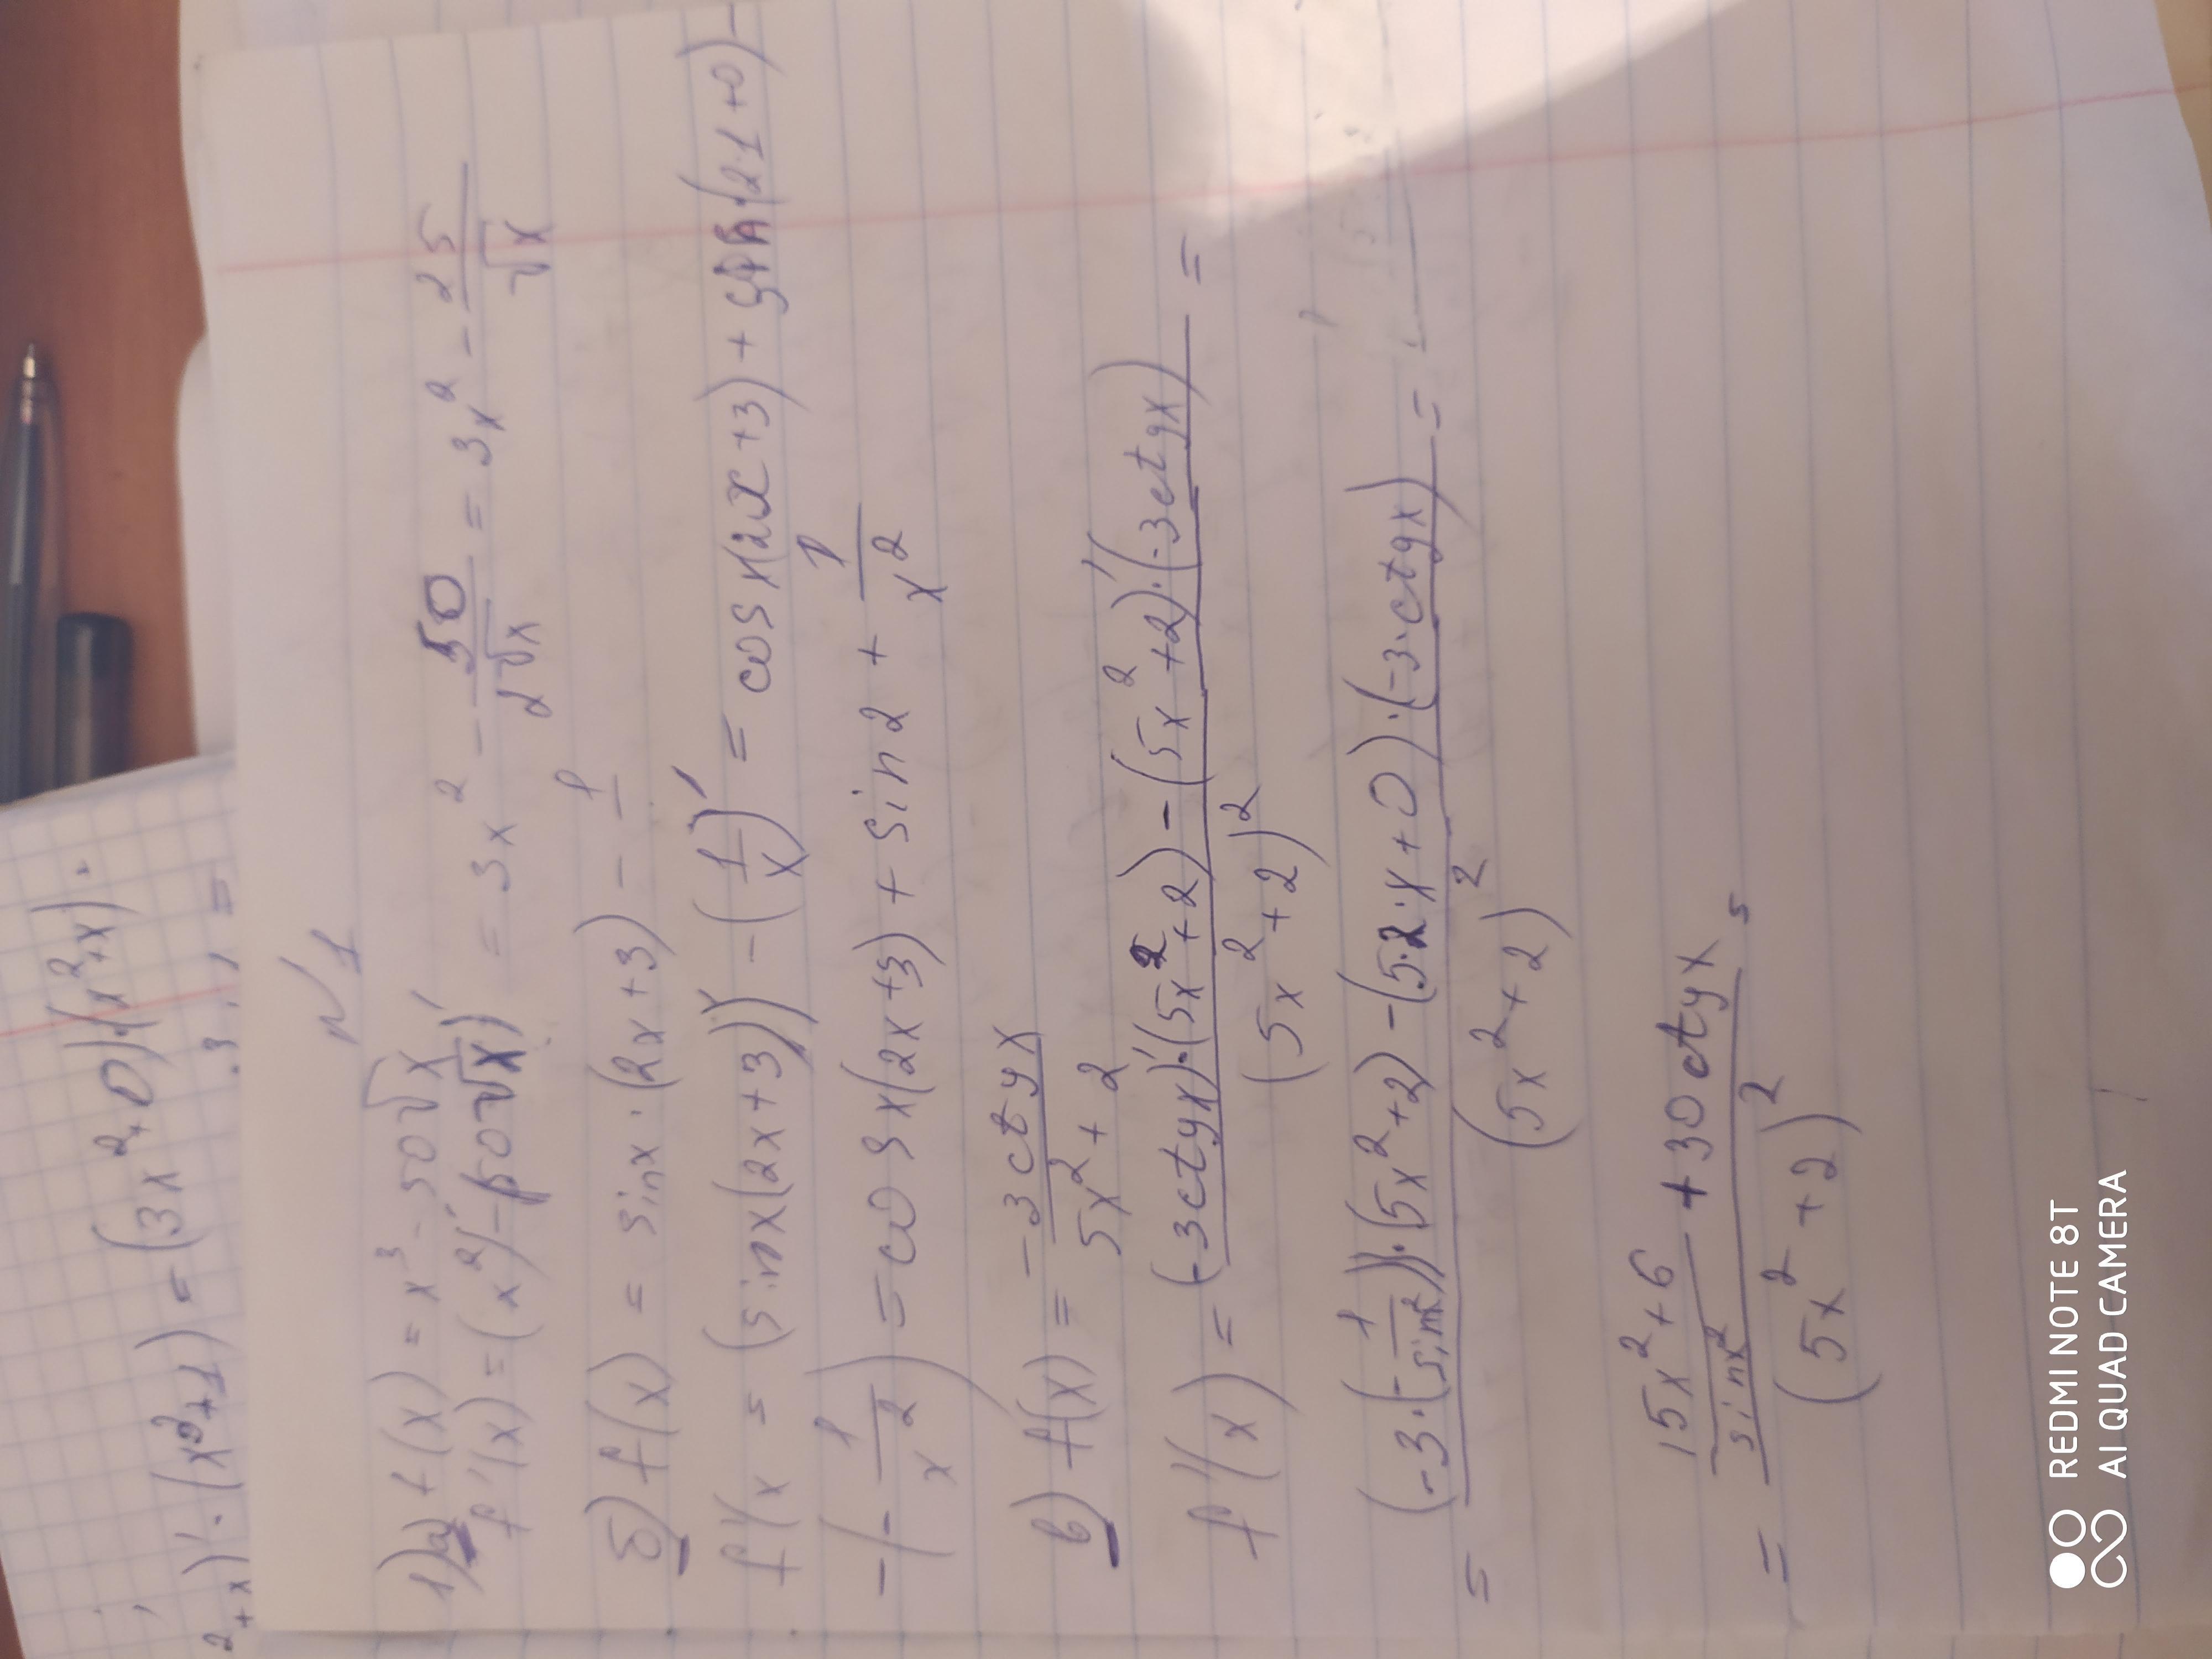 (3x²+0)·(x²+x)·
²+x)'·(x²+1) =
N1
1) а) f(x) = x³ - 50√x
f'(x) = (x²)' - (50√x)' = 3x² - 50/2√x = 3x² - 25/√x
б) f(x) = sinx·(2x+3) - 1
f'(x = (sinx(2x+3))' - (1/x)' = cosx(2x+3) + sin·(2·1+0) -
-(-1/x²) = cosx(2x+3) + sin2 + 1/x²
в) f(x) = -3ctgx/5x²+2
f'(x) = (-3ctgx)'·(5x²+2) - (5x²+2)'·(-3ctgx)/(5x²+2)² =
= (-3·(-1/sinx²))·(5x²+2) - (5·2·x+0)·(-3·ctgx)/(5x²+2)² =
= 15x²+6/sinx² + 30ctgx/(5x²+2)²
REDMI NOTE 8T
AI QUAD CAMERA